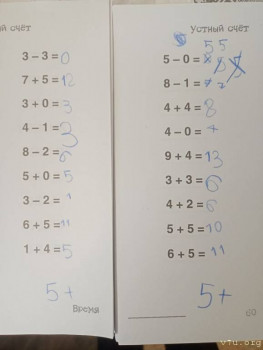 ый счёт
3 – 3 = 0
7 + 5 = 12
3 + 0 = 3
4 – 1 = 3
8 – 2 = 6
5 + 0 = 5
3 – 2 = 1
6 + 5 = 11
1 + 4 = 5
5+
Время
Устный счёт
5 5
5 – 0 =
8 – 1 =
4 + 4 = 8
4 – 0 = 4
9 + 4 = 13
3 + 3 = 6
4 + 2 = 6
5 + 5 = 10
6 + 5 = 11
5+
60
vfu.org